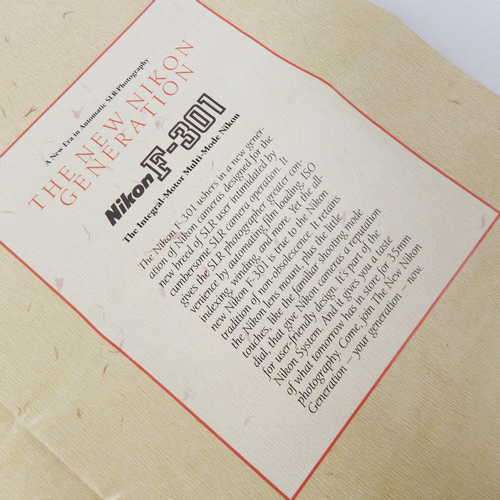 A New Era in Automatic SLR Photography
THE NEW NIKON
GENERATION
Nikon F-301
The Integral-Motor Multi-Mode Nikon
The Nikon F-301 ushers in a new gener-
ation of Nikon cameras designed for the
new breed of SLR user intimidated by
cumbersome SLR camera operation. It
gives the SLR photographer greater con-
venience by automating film loading, ISO
indexing, winding, and more. Yet the all-
new Nikon F-301 is true to the Nikon
tradition of non-obsolescence. It retains
the Nikon lens mount, plus the little
touches, like the familiar shooting mode
dial, that give Nikon cameras a reputation
for user-friendly design. It's part of the
Nikon System. And it gives you a taste
of what tomorrow has in store for 35mm
photography. Come, join The New Nikon
Generation — your generation — now.